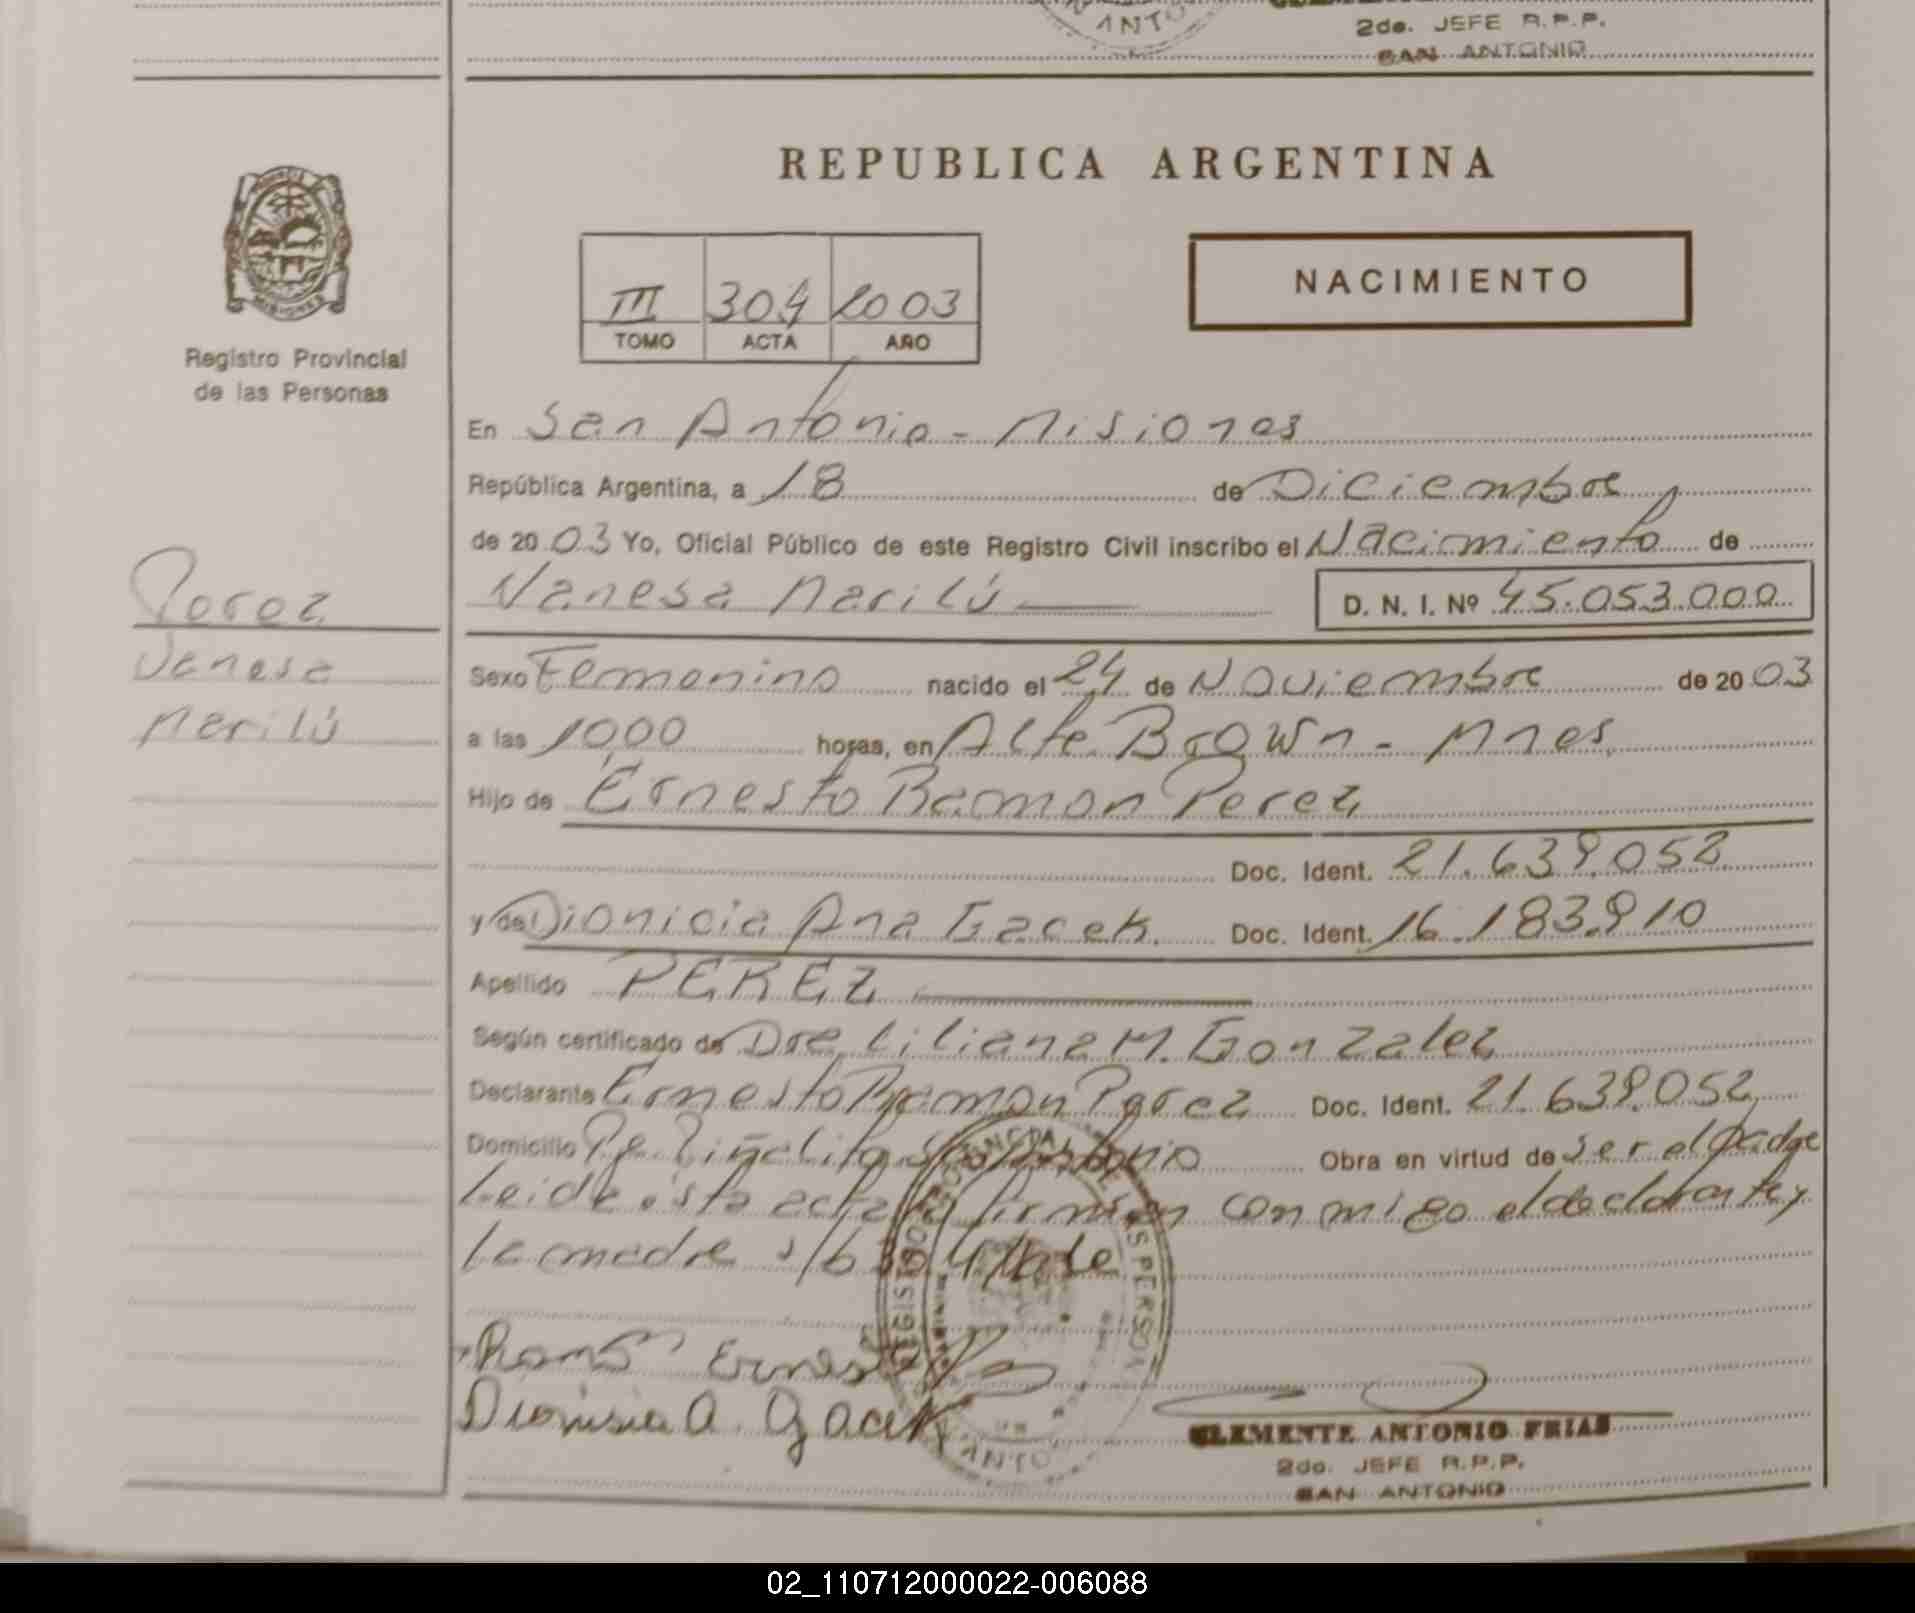 ANTO
2do. JEFE R.P.P.
SAN ANTONIO
REPUBLICA ARGENTINA
MISIONES
Registro Provincial
de las Personas
III 304 2003
TOMO ACTA AÑO
NACIMIENTO
En San Antonio - Misiones
República Argentina, a 18 de Diciembre
de 20 03 Yo, Oficial Público de este Registro Civil inscribo el Nacimiento de
Vanesa Marilú D. N. I. Nº 45.053.000
Perez
Vanesa
Marilú
Sexo Femenino nacido el 24 de Noviembre de 20 03
a las 1000 horas, en Alte. Brown - Mnes.
Hijo de Ernesto Ramon Perez
Doc. Ident. 21.639.052
y de Dionicia Ana Gacek. Doc. Ident. 16.183.910
Apellido PEREZ
Según certificado de Dra. Liliana M. Gonzalez
Declarante Ernesto Ramon Perez Doc. Ident. 21.639.052
Domicilio Piñalito Obra en virtud de ser el padre
Leida ésta acta firman conmigo el declarante y
la madre
Ramó Ernes
Dionisia A. Gacek
CLEMENTE ANTONIO FRIAS
2do. JEFE R.P.P.
SAN ANTONIO
02_110712000022-006088